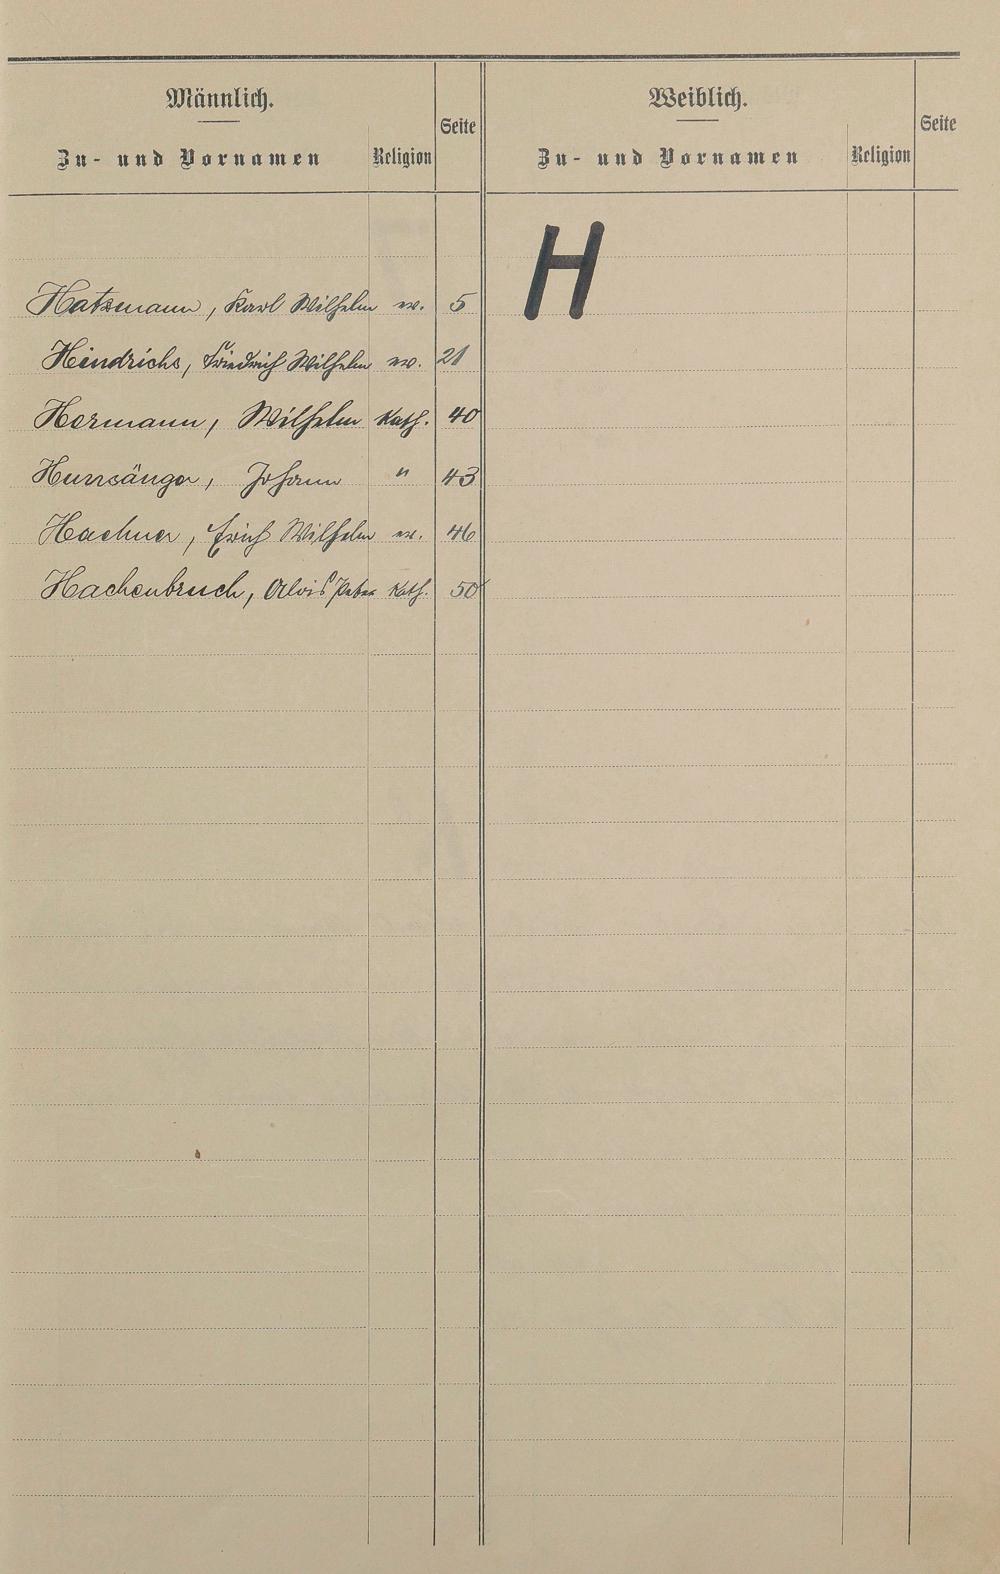 Männlich.
Zu- und Vornamen Religion Seite
Weiblich.
Zu- und Vornamen Religion Seite
H
Hatzmann, Karl Wilhelm ev. 5
Hendrichs, Friedrich Wilhelm ev. 21
Hermann, Wilhelm Kath. 40
Johann " 43
Erich Wilhelm ev. 46
Hachenbruch, Alois Peter Kath. 50